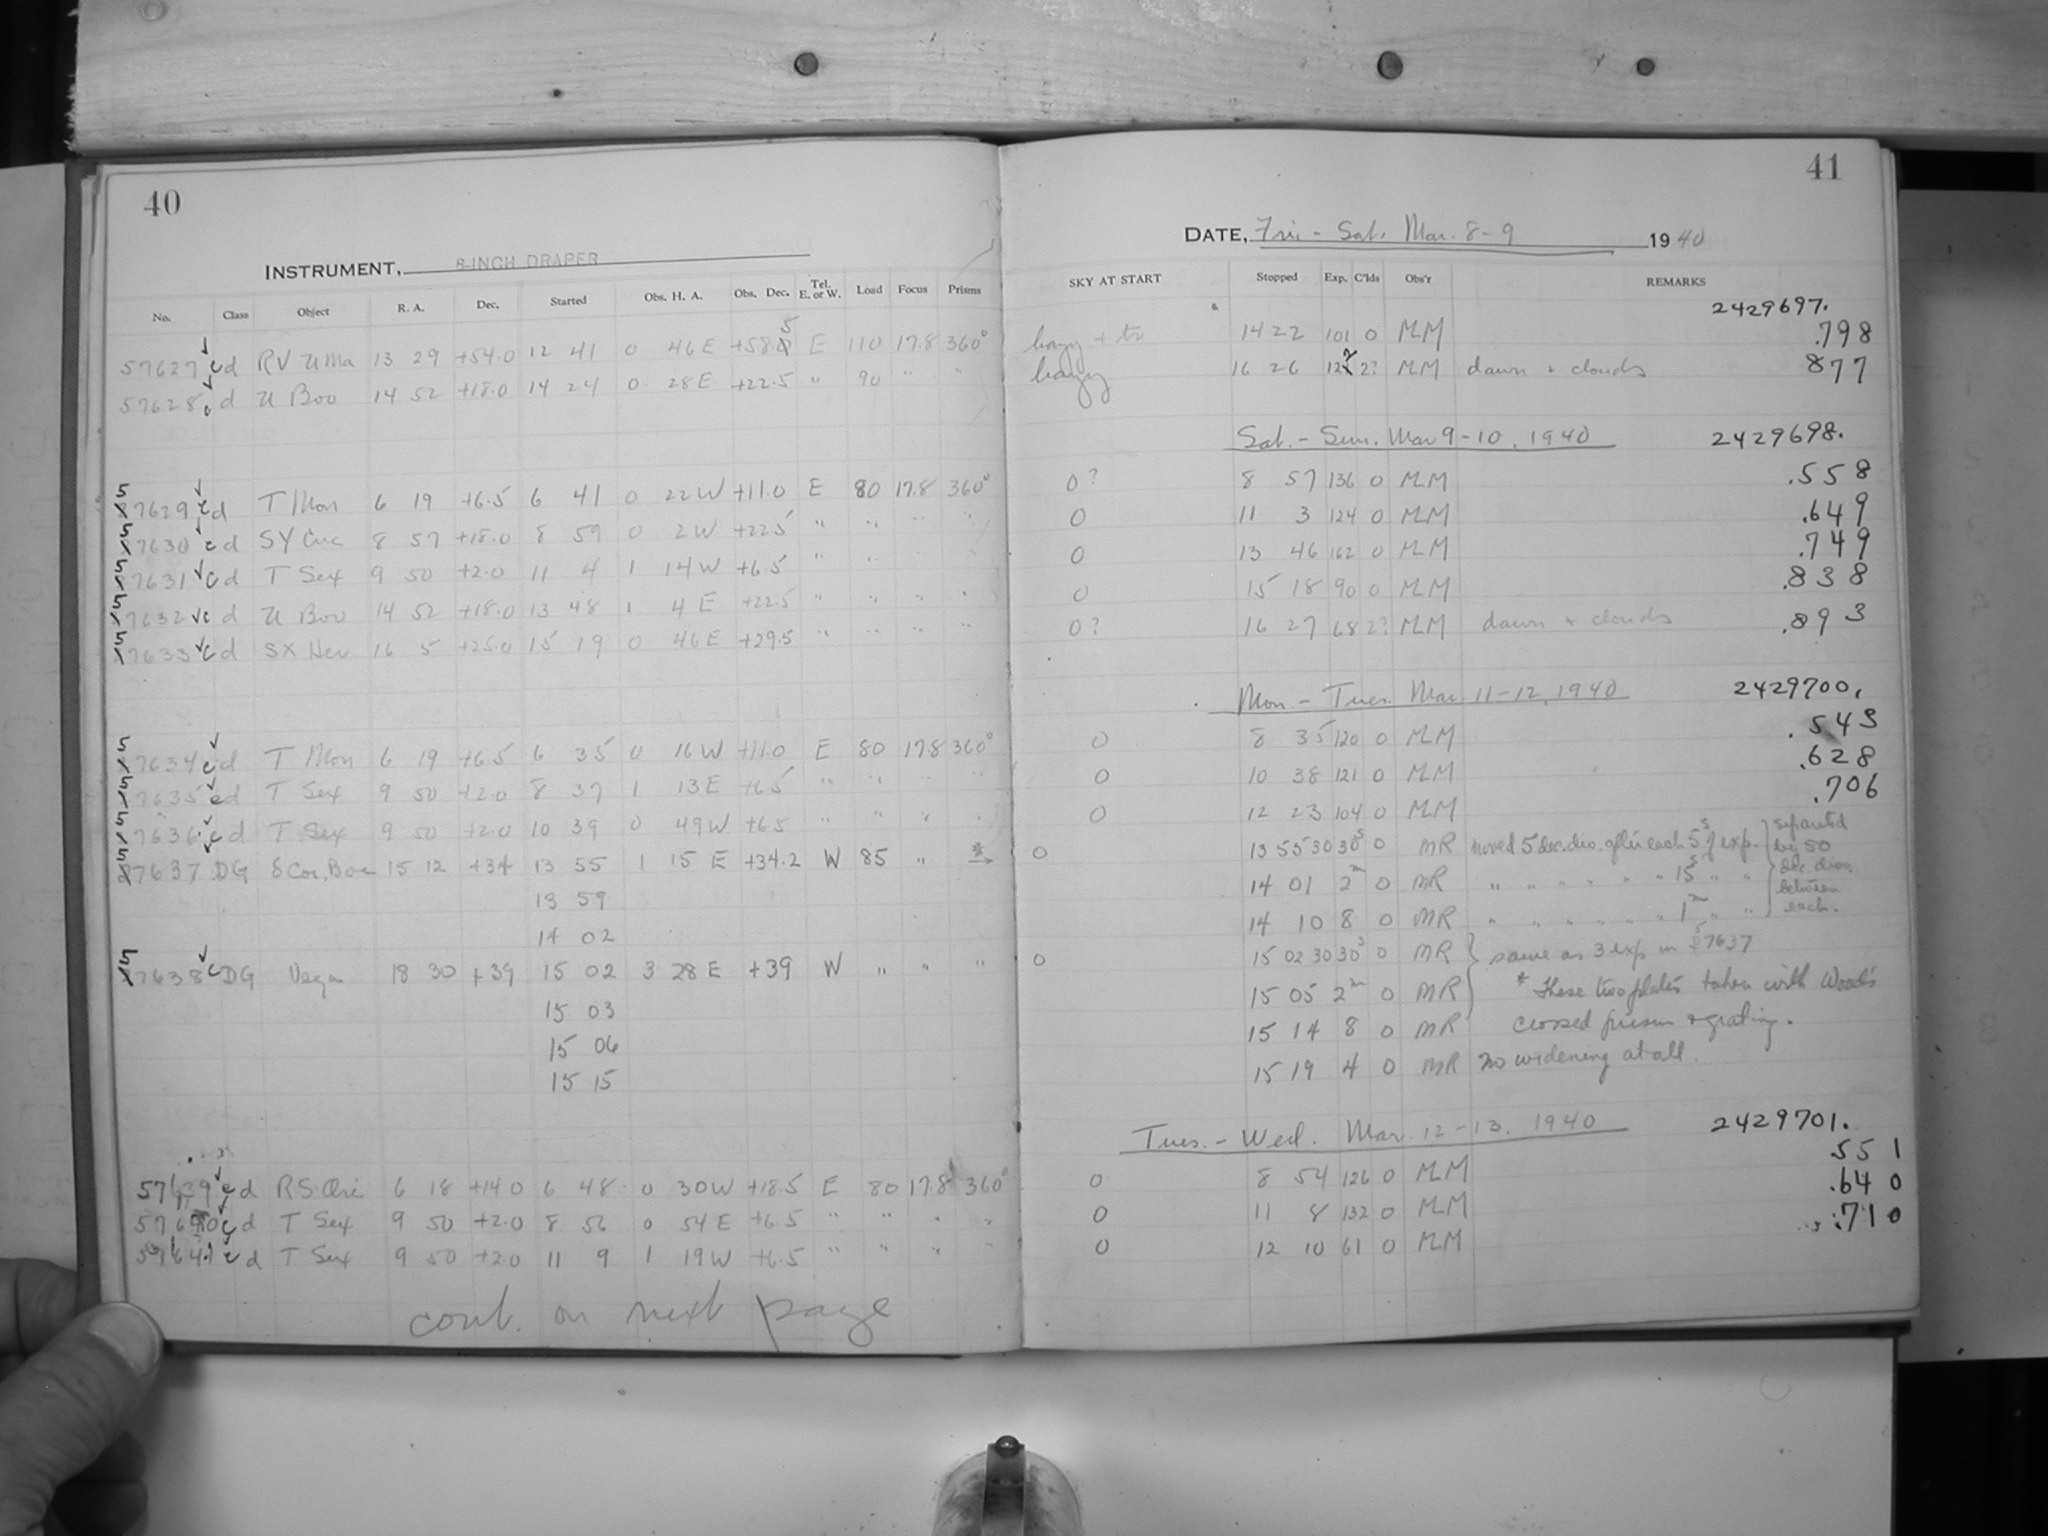 40
INSTRUMENT, 8-INCH DRAPER
No. Class Object R. A. Dec. Started Obs. H. A. Obs. Dec. Tel. E. or W. Load Focus Prisms
57627 c d RV UMa 13 29 +54.0 12 41 0 46E +58.5 E 110 17.8 360°
57628 c d U Boo 14 52 +18.0 14 24 0 28E +22.5 " 90 " "
57629 c d T Mon 6 19 +6.5 6 41 0 22W +11.0 E 80 17.8 360°
57630 c d SY Cnc 8 57 +18.0 8 59 0 2W +22.5 " " " "
57631 c d T Sex 9 50 +2.0 11 4 1 14W +6.5 " " " "
57632 c d U Boo 14 52 +18.0 13 48 1 4E +22.5 " " " "
57633 c d SX Her 16 5 +25.0 15 19 0 46E +29.5 " " " "
57634 c d T Mon 6 19 +6.5 6 35 0 16W +11.0 E 80 17.8 360°
57635 c d T Sex 9 50 +2.0 8 37 1 13E +6.5 " " " "
57636 c d T Sex 9 50 +2.0 10 39 0 49W +6.5 " " " "
57637 DG δ Cor. Bor 15 12 +34 13 55 1 15 E +34.2 W 85 " *
13 59
14 02
57638 c DG Vega 18 30 +39 15 02 3 28E +39 W " " "
15 03
15 06
15 15
57639 c d RS Ori 6 18 +14.0 6 48 0 30W +18.5 E 80 17.8 360°
57640 c d T Sex 9 50 +2.0 8 56 0 54E +6.5 " " " "
57641 c d T Sex 9 50 +2.0 11 9 1 19W +6.5 " " " "
cont. on next page
41
DATE, Fri - Sat. Mar. 8-9 1940
SKY AT START Stopped Exp. C'lds Obs'r REMARKS
2429697.
hazy + 14 22 101 0 MM .798
hazy 16 26 122 2? MM dawn + clouds 877
Sat. - Sun. Mar 9-10, 1940 2429698.
0? 8 57 136 0 MM .558
0 11 3 124 0 MM .649
0 13 46 162 0 MM .749
0 15 18 90 0 MM .838
0? 16 27 68 2? MM dawn + clouds .893
Mon - Tues. Mar. 11-12, 1940 2429700.
0 8 35 120 0 MM .543
0 10 38 121 0 MM .628
0 12 23 104 0 MM .706
0 13 55 30 30s 0 MR moved 5 dec. div. after each 5s of exp. separated by 50 dec. divs. between each.
14 01 2m 0 MR " " " " " " 15s " "
14 10 8 0 MR " " " " " " 1m " "
0 15 02 30 30s 0 MR same as 3 exp in 57637
15 05 2m 0 MR * These two plates taken with Wood's
15 14 8 0 MR crossed prism + grating.
15 19 4 0 MR No widening at all.
Tues. - Wed. Mar. 12-13, 1940 2429701.
0 8 54 126 0 MM .551
0 11 8 132 0 MM .640
0 12 10 61 0 MM .710